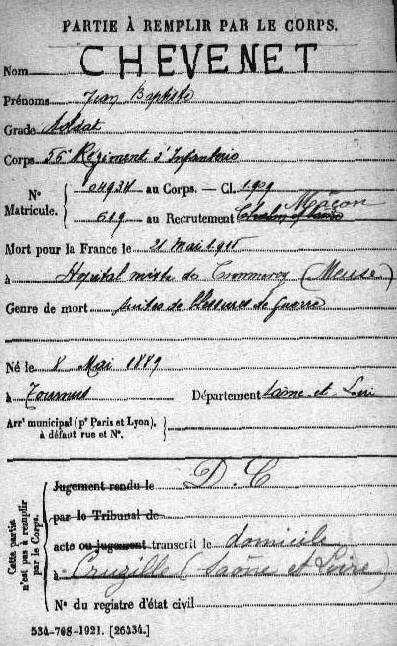 PARTIE À REMPLIR PAR LE CORPS.
Nom CHEVENET
Prénoms Jean Baptiste
Grade Soldat
Corps 56e Régiment d'Infanterie
No Matricule. { 04934 au Corps. — Cl. 1909
619 au Recrutement Mâcon
Mort pour la France le 21 mai 1915
à Hopital mixte de Commercy (Meuse)
Genre de mort suites de blessures de guerre
Né le 8 Mai 1889
à Tournus Département Saône et Loire
Arrt municipal (pr Paris et Lyon), à défaut rue et No.
Cette partie n'est pas à remplir par le Corps.
Jugement rendu le D. C
par le Tribunal de
acte ou jugement transcrit le domicile
à Cruzille (Saône et Loire)
No du registre d'état civil
534-708-1921. [26434.]